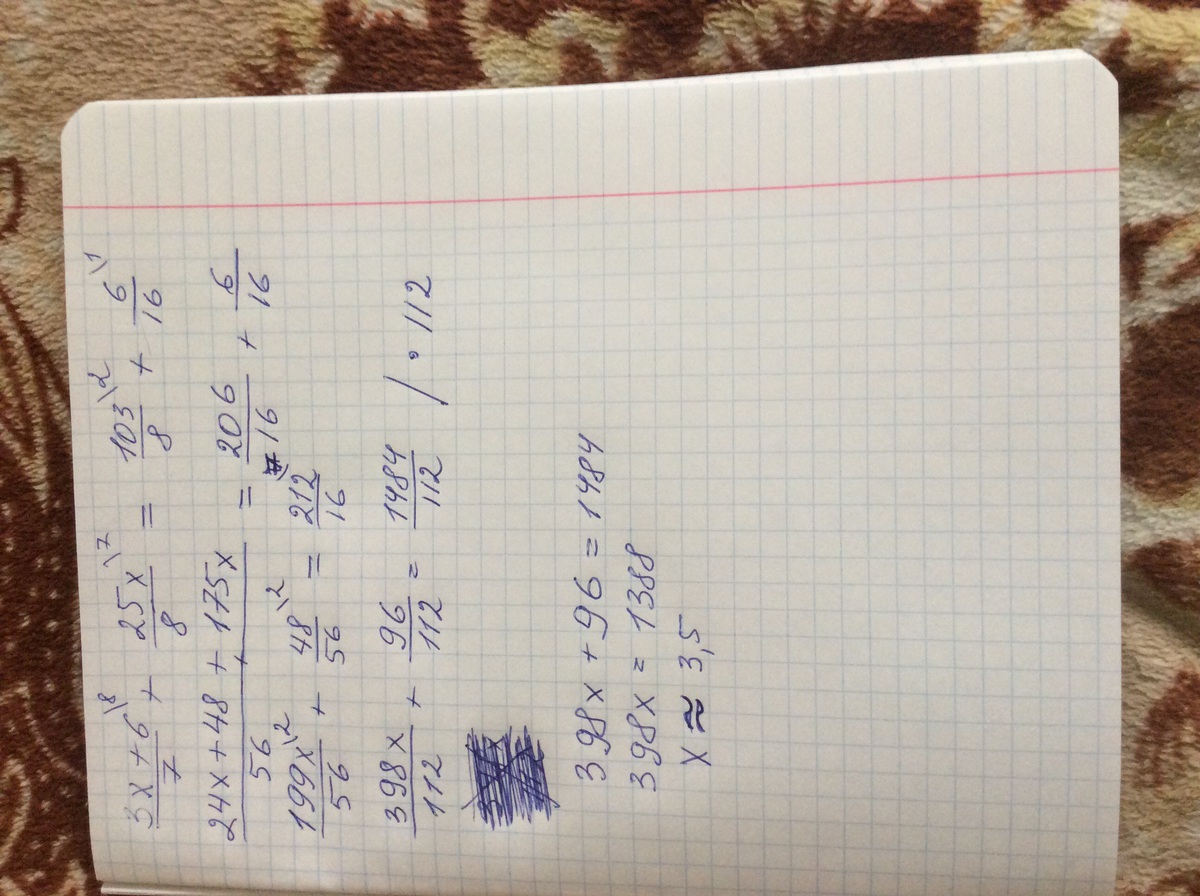 3x+6\8/7 + 25x\7/8 = 103\2/8 + 6\1/16
24x+48+175x/56 = 206/16 + 6/16
199x\2/56 + 48\2/56 = 212/16
398x/112 + 96/112 = 1484/112 / · 112
398x + 96 = 1484
398x = 1388
x ≈ 3,5